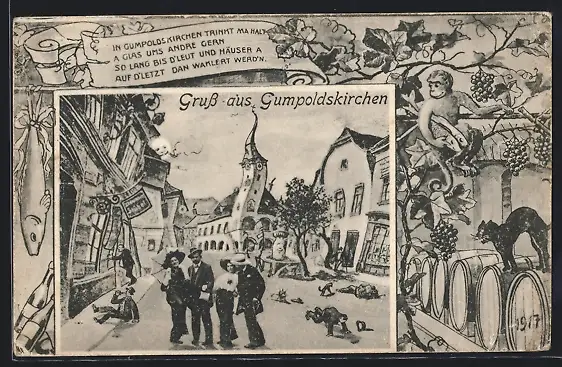 IN GUMPOLDSKIRCHEN TRINKT MA HALT
A GLAS UMS ANDRE GERN
SO LANG BIS D'LEUT UND HÄUSER A
AUF D'LETZT DAN WAKLERT WERD'N.
Gruß aus Gumpoldskirchen
1917